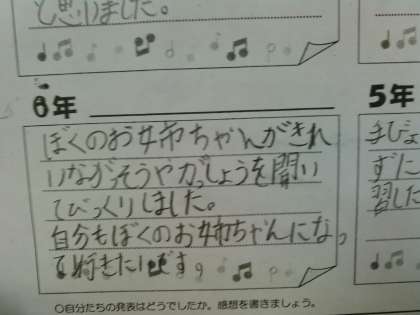 と思いました。
6年
ぼくのお姉ちゃんがきれ
いながそうやがっしょうを聞い
てびっくりしました。
自分もぼくのお姉ちゃんになっ
て
たいです。
5年
手びょ
ずに
習した
○自分たちの発表はどうでしたか。感想を書きましょう。